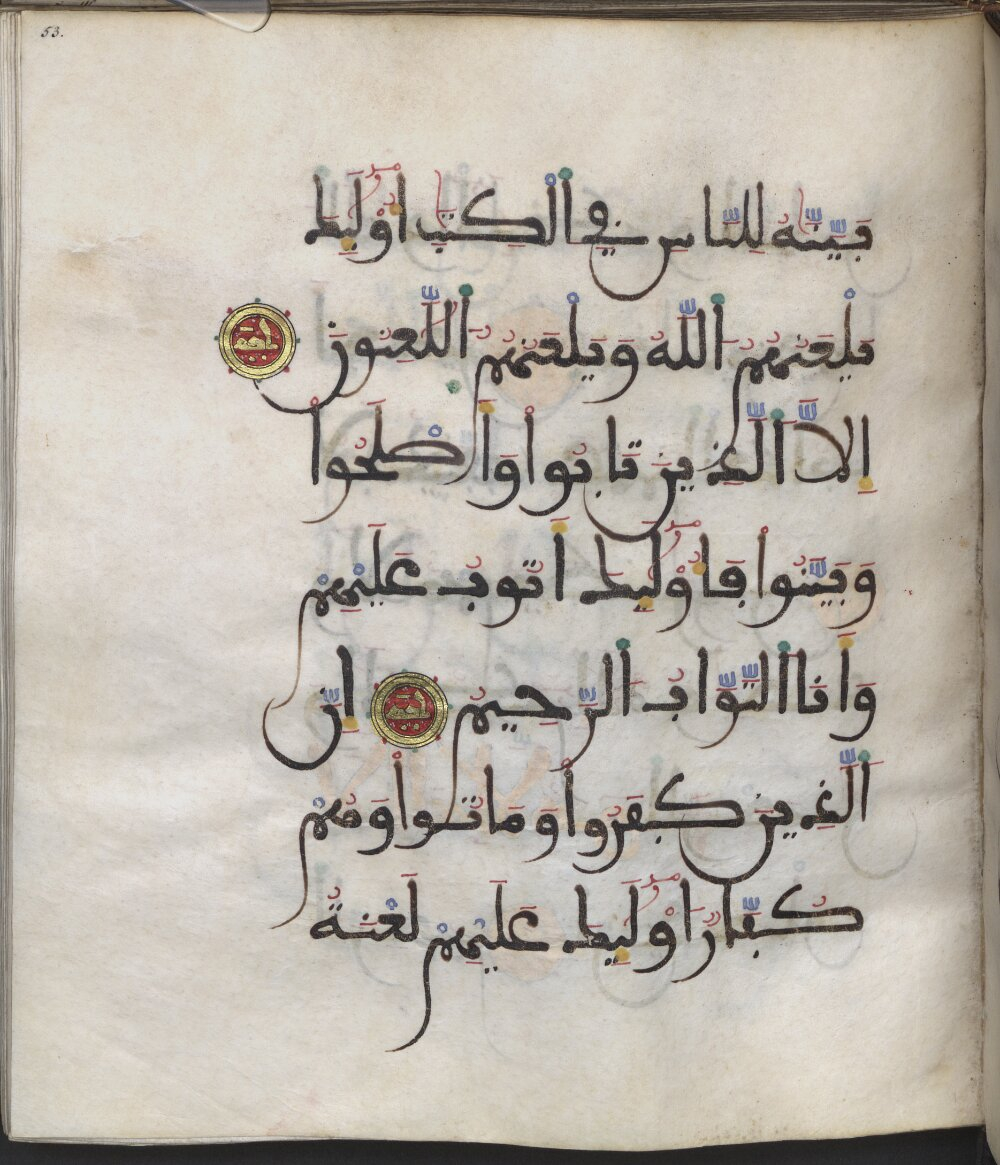 53.
بَيَّنَّٰهُ لِلنَّاسِ فِي اِ۬لْكِتَٰبِ أُوْلَٰٓئِكَ
يَلْعَنُهُمُ اُ۬للَّهُ وَيَلْعَنُهُمُ اُ۬للَّٰعِنُونَ
إِلَّا اَ۬لَّذِينَ تَابُواْ وَأَصْلَحُواْ
وَبَيَّنُواْ فَأُوْلَٰٓئِكَ أَتُوبُ عَلَيْهِمْ
وَأَنَا اَ۬لتَّوَّابُ اُ۬لرَّحِيمُ إِنَّ
اَ۬لَّذِينَ كَفَرُواْ وَمَاتُواْ وَهُمْ
كُفَّارٌ أُوْلَٰٓئِكَ عَلَيْهِمْ لَعْنَةُ